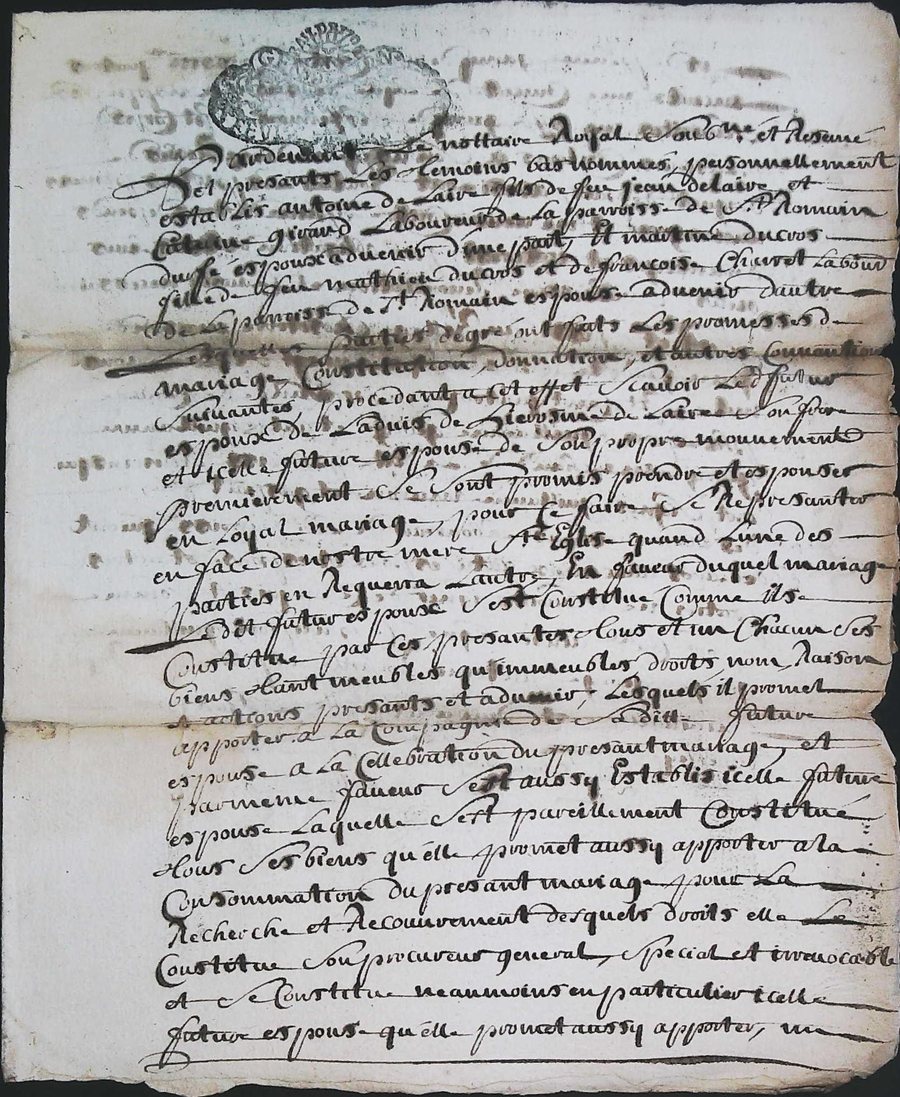 Pardevant Le nottaire Royal Soubne et Reservé
Et presants Les tlemoins bas nommés, personnellement
establis antoine de Laire fils de feu jean delaire et
Caterine girard Laboureur de La parroisse de St Romain
espoux advenir d'une part, Et martine ducros
fille de feu mathieu ducros et de françoise Labour
de La parroisse de St Romain espouse advenir dautre
Lesquelles parties de gré ont faits Les promesses de
mariage, Constitution, donnation, et autres Convantions
suivantes, procedant a cet effet scavoir Led futur
espoux de L'advis de de Laire son frere
et icelle future espouse de son propre mouvement
premierement se sont promis prendre et espouser
en Loyal mariage, pour ce faire se Represanter
en face de nostre mere Ste Eglise quand Lune des
parties en Requerra Lautre, En faveur duquel mariage
Le dit futur espoux s'est Constitue Comme il se
Constitue par Ces presantes tous et un Chacun ses
biens tant meubles qu'immeubles droits, nom Raison
et actions presants et advenir, Lesquels il promet
apporter a La Compagnie de sa ditte future
espouse a La Cellebration du presant mariage, et
par meme faveur s'est aussy Establis icelle future
espouse Laquelle s'est pareillement Constitué
tous ses biens qu'elle promet aussy apporter a la
Consommation du presant mariage pour La
Recherche et Recouvrement desquels droits elle Le
Constitue son procureur general, special et irrevocable
et se Constitue neanmoins en particulier icelle
future espouse qu'elle promet aussy apporter, un